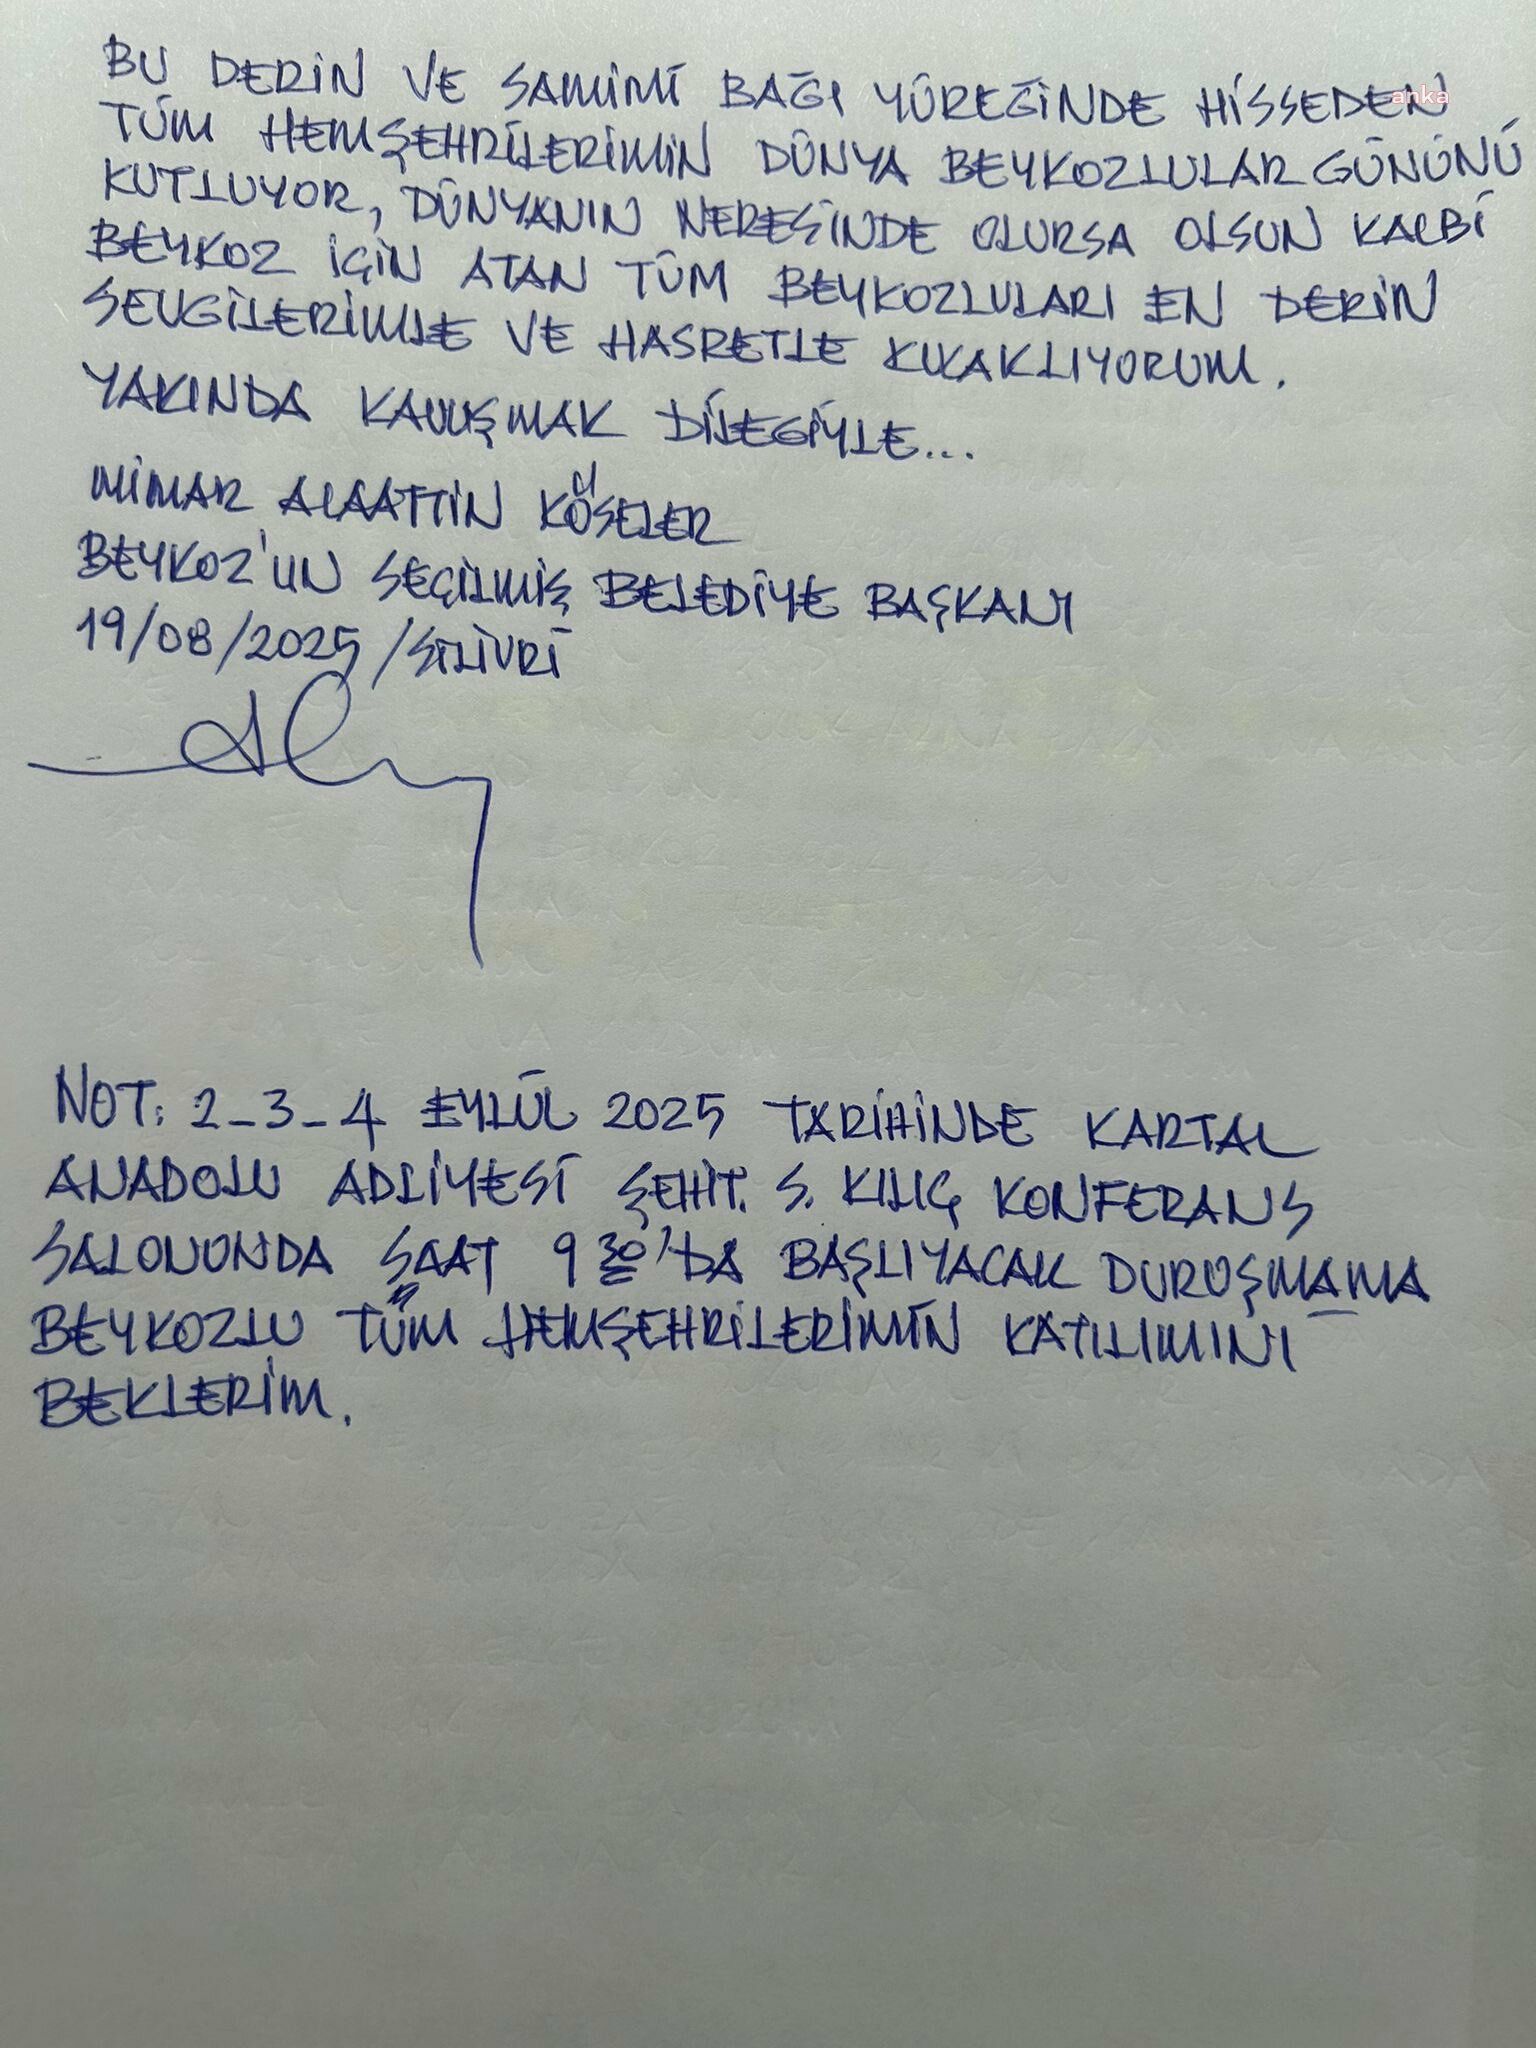 BU DERİN VE SAMİMİ BAĞI YÜREĞİNDE HİSSEDEN
anka
TÜM HEMŞEHRİLERİMİN DÜNYA BEYKOZLULAR GÜNÜNÜ
KUTLUYOR, DÜNYANIN NERESİNDE OLURSA OLSUN KALBİ
BEYKOZ İÇİN ATAN TÜM BEYKOZLULARI EN DERİN
SEVGİLERİMLE VE HASRETLE KUCAKLIYORUM.
YAKINDA KAVUŞMAK DİLEGİYLE...
MİMAR ALAATTİN KÖSELER
BEYKOZ'UN SEÇİLMİŞ BELEDİYE BAŞKANI
19/08/2025 /SİLİVRİ
NOT: 2-3-4 EYLÜL 2025 TARİHİNDE KARTAL
ANADOLU ADLİYESİ ŞEHİT. S. KILIÇ KONFERANS
SALONUNDA SAAT 9 30'DA BAŞLIYACAK DURUŞMAMA
BEYKOZLU TÜM HEMŞEHRİLERİMİN KATILIMINI
BEKLERİM.